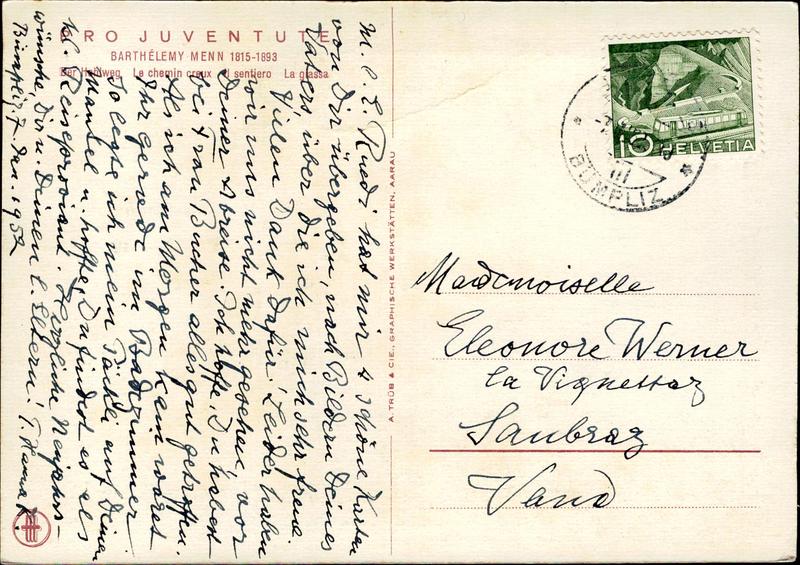 PRO JUVENTUTE
BARTHÉLEMY MENN 1815-1893
Der Hohlweg Le chemin creux Il sentiero La glassa
M. l. E. Ruedi hat mir 2 schöne Karten
von Dir übergeben, nach Bildern Deines
Vaters, über die ich mich sehr freue.
Vielen Dank dafür! Leider haben
wir uns nicht mehr gesehen, vor
Deiner Abreise. Ich hoffe, Du habest
bei Frau Bucher alles gut getroffen.
Als ich am Morgen kam warst
Ihr gerade im Badezimmer
So legte ich mein Päckli auf Deinen
Mantel u. hoffe, Du findest es als
kl. Reiseproviant. Herzliche Neujahrs-
wünsche Dir u. Deinen l. Eltern! T. Hanna R.
Bümpliz 7. Jan. 1952
A. TRÜB & CIE., GRAPHISCHE WERKSTÄTTEN, AARAU
10 HELVETIA
BÜMPLIZ
Mademoiselle
Eleonore Werner
La Vignettaz
Saubraz
Vaud